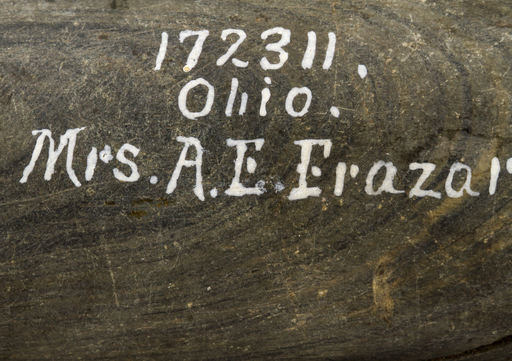 172311.
Ohio.
Mrs. A. E. Frazar